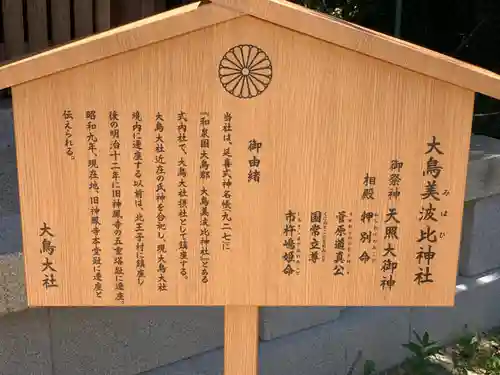 大鳥美波比神社
みはひ
御祭神 天照大御神
相殿 押別命
菅原道真公
国常立尊
市杵嶋姫命
御由緒
当社は、延喜式神名帳九二七に
『和泉国大鳥郡 大鳥美波比神社』とある
式内社で、大鳥大社摂社として鎮座する。
大鳥大社近在の氏神を合祀し、現・大鳥大社
境内に遷座する以前は、北王子村に鎮座し
後の明治十二年に旧神鳳寺の五重塔趾に遷座。
昭和九年、現在地、旧神鳳寺本堂趾に遷座と
伝えられる。
大鳥大社